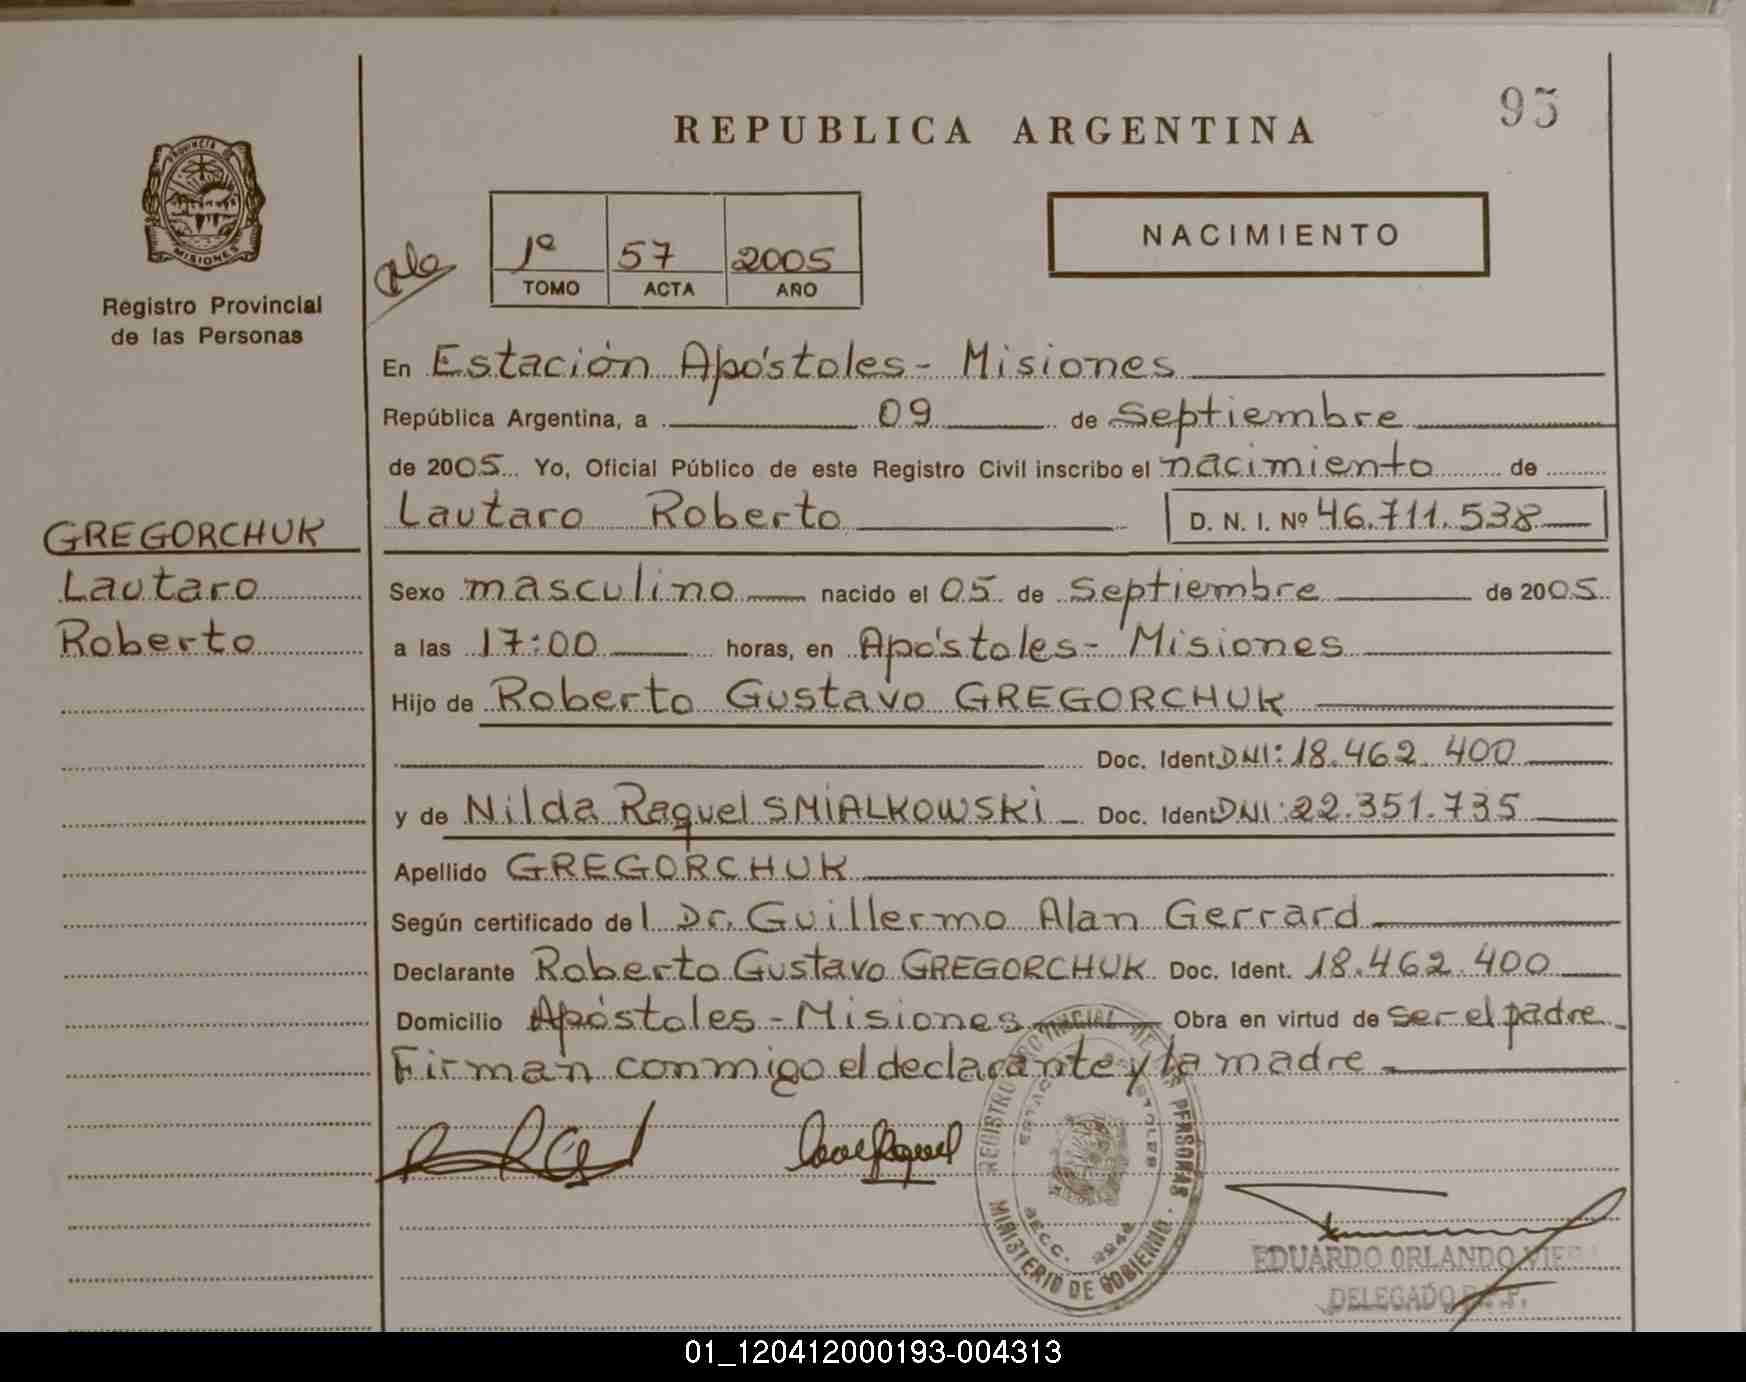 95
REPUBLICA ARGENTINA
PROVINCIA DE
MISIONES
Registro Provincial
de las Personas
1º 57 2005
TOMO ACTA AÑO
NACIMIENTO
En Estación Apóstoles - Misiones
República Argentina, a 09 de Septiembre
de 2005 Yo, Oficial Público de este Registro Civil inscribo el nacimiento de
Lautaro Roberto D. N. I. Nº 46.711.538
GREGORCHUK
Lautaro
Roberto
Sexo masculino nacido el 05 de Septiembre de 2005
a las 17:00 horas, en Apóstoles - Misiones
Hijo de Roberto Gustavo GREGORCHUK
Doc. Ident. DNI: 18.462.400
y de Nilda Raquel SMIALKOWSKI Doc. Ident. DNI: 22.351.735
Apellido GREGORCHUK
Según certificado del Dr. Guillermo Alan Gerrard
Declarante Roberto Gustavo GREGORCHUK Doc. Ident. 18.462.400
Domicilio Apóstoles - Misiones Obra en virtud de ser el padre
Firman conmigo el declarante y la madre
REGISTRO PROVINCIAL DE LAS PERSONAS
MINISTERIO DE GOBIERNO
EDUARDO ORLANDO
DELEGADO
01_120412000193-004313